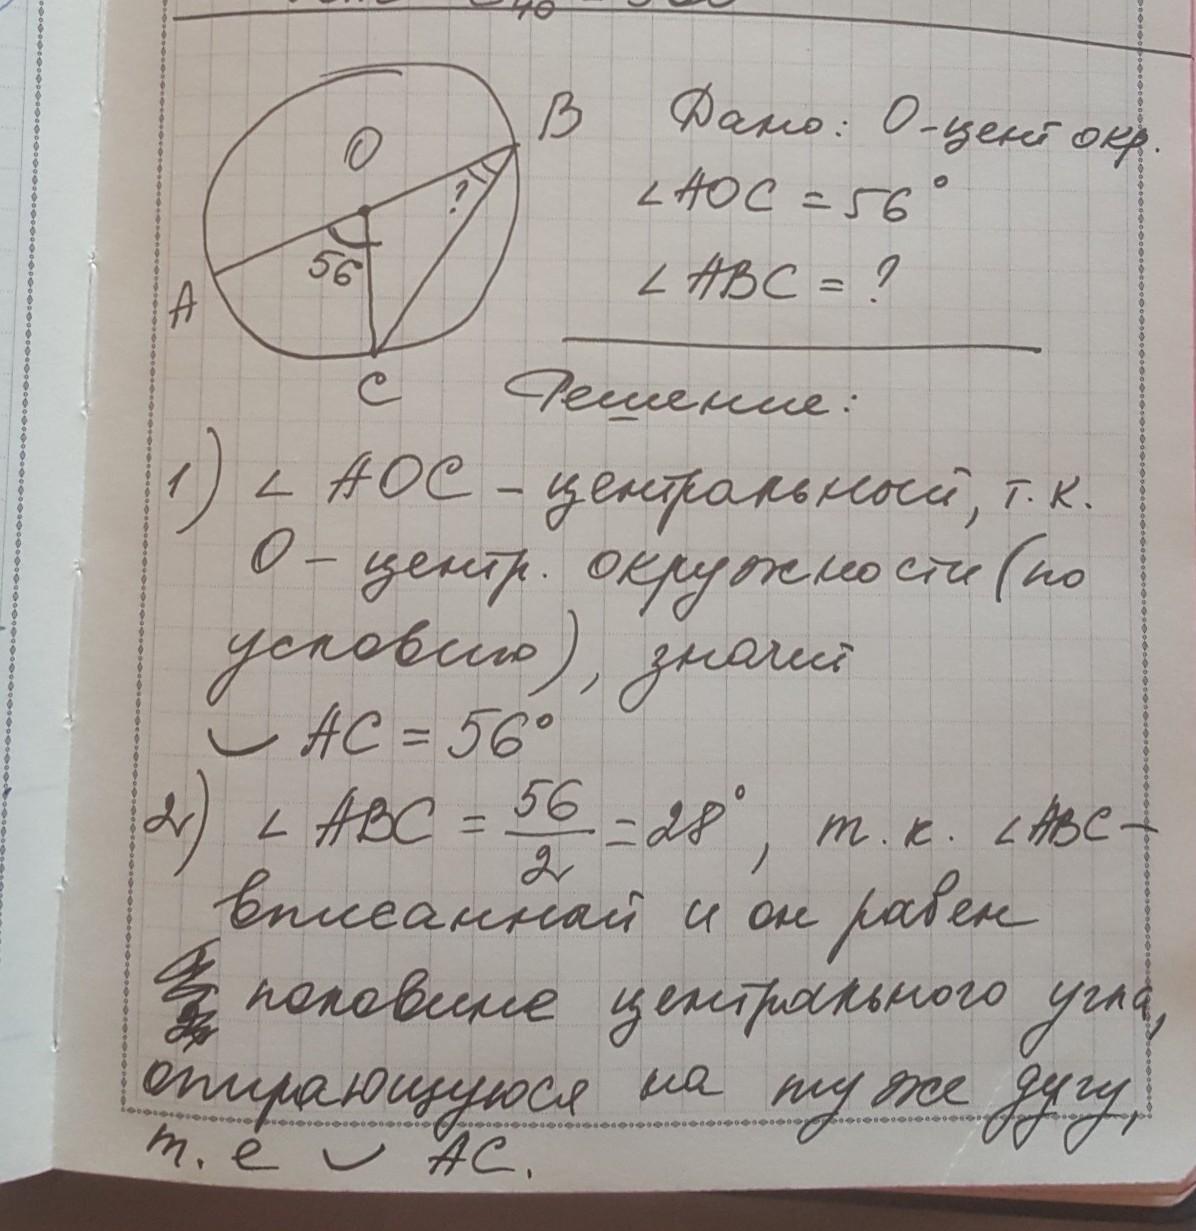 O
B
?
56
A
C
Дано: O-цент окр.
∠AOC = 56°
∠ABC = ?
Решение:
1) ∠ AOC - центральный, т.к.
O - центр. окружности (по
условию), значит
◡ AC = 56°
2) ∠ ABC = 56/2 = 28°, т.к. ∠ABC -
вписанный и он равен
половине центрального угла,
опирающуюся на ту же дугу,
т. е ◡ AC.